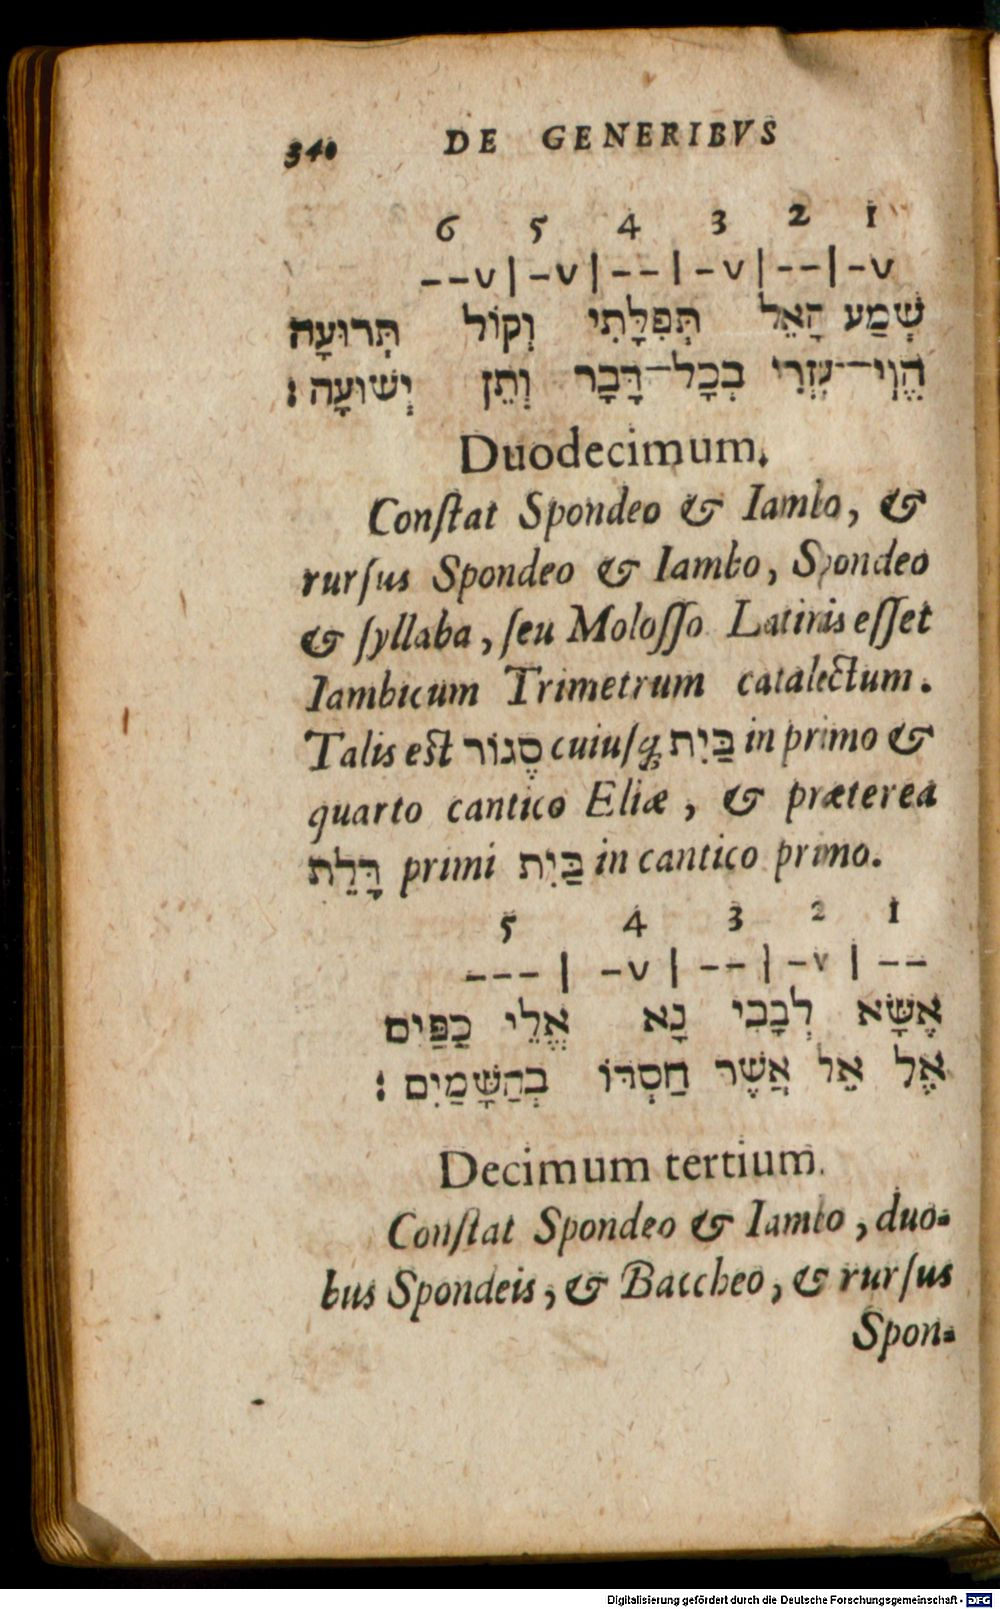 340 DE GENERIBVS
6 5 4 3 2 1
--v|-v|--|-v|--|-v
שְׁמַע הָאֵל תְּפִלָּתִי וְקוֹל תְּרוּעָה
הֱוֵי־עֶזְרִי בְּכָל־דָּבָר וְתֵן יְשׁוּעָה׃
Duodecimum.
Conſtat Spondeo & Iambo, &
rurſus Spondeo & Iambo, Spondeo
& ſyllaba, ſeu Moloſſo Latinis eſſet
Iambicum Trimetrum catalectum.
Talis est סֶגוֹר cuiuſq; בַּיִת in primo &
quarto cantico Eliæ, & præterea
דָּלֵת primi בַּיִת in cantico primo.
5 4 3 2 1
---|-v|--|-v|--
אֶשָּׂא לְבָבִי נָא אֱלֵי כַפַּיִם
אֶל אֵל אֲשֶׁר חַסְדּוֹ בְּהַשָּׁמַיִם׃
Decimum tertium.
Conſtat Spondeo & Iambo, duo-
bus Spondeis, & Baccheo, & rurſus
Spon-
Digitalisierung gefördert durch die Deutsche Forschungsgemeinschaft - DFG